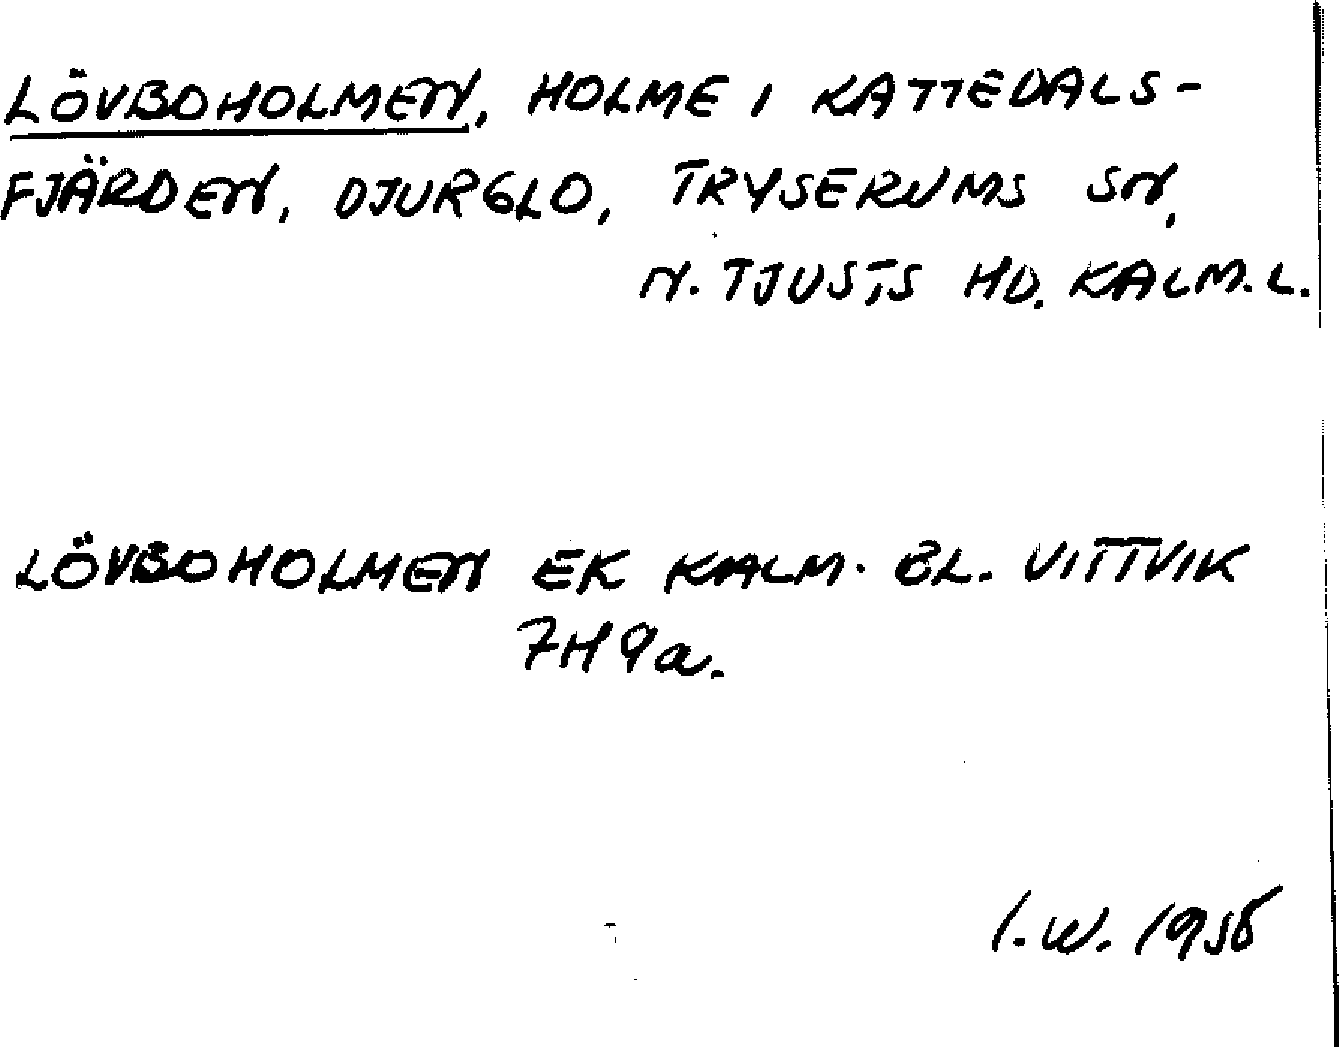 LÖVBOHOLMEN, HOLME I KATTEDALS-
FJÄRDEN, DJURGLO, TRYSERUMS SN,
N. TJUSTS HD. KALM. L.
LÖVBOHOLMEN EK KALM. BL. VITTVIK
7H9a.
I.W. 1958